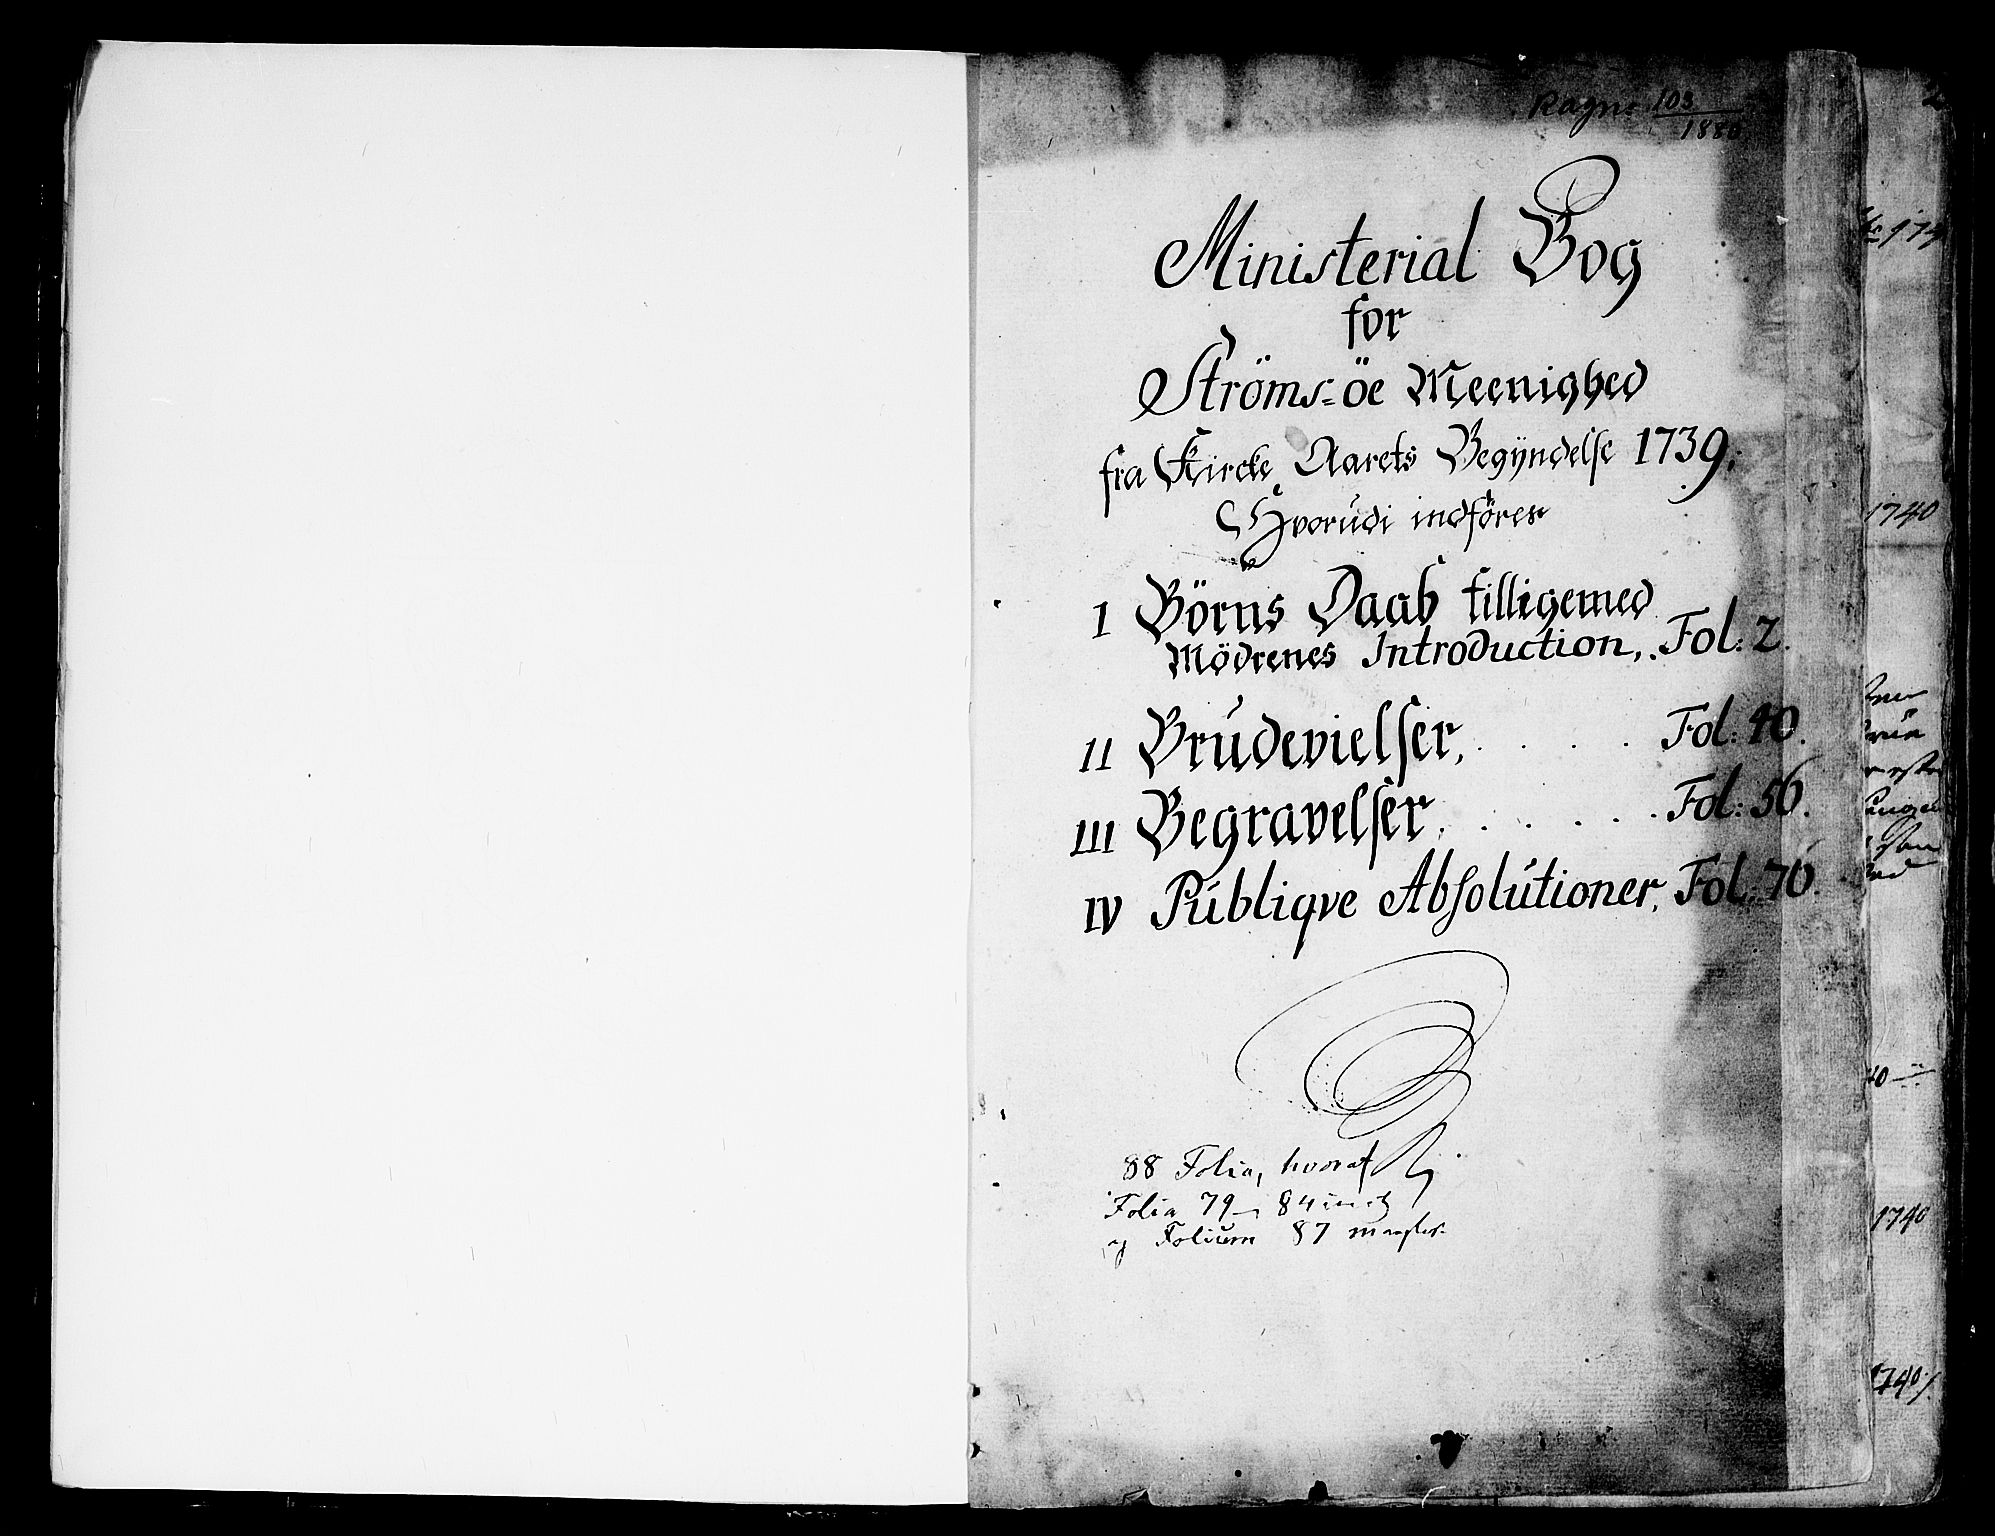 103
1880
Ministerial Bog
for
Ströms=öe Meenighed
fra Kircke Aarets Begÿndelse 1739;
Hvorudi indföres
I Börns Daab tilligemed
Mödrenes Introduction, Fol: 2.
II Brudevielser, . . . . Fol: 40.
III Begravelser, . . . . . Fol: 56.
IV Publiqve Absolutioner, Fol: 76.
88 Folia, hvoraf
Folia 79 - 84 incl
og Folium 87 mangler.
2
174
1740
40
1740
1740